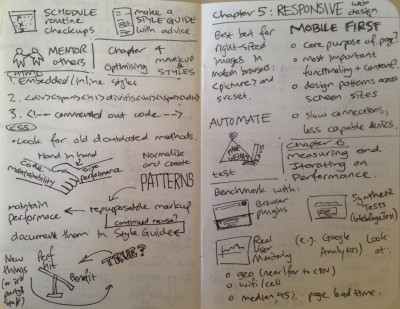 SCHEDULE
routine
checkups
make a
STYLE GUIDE
with advice
MENTOR
others
Chapter 4
Optimising
MARKUP
STYLES
HTML
1. Embedded/inline styles
2. <div><span><div><span>
3. <!-- commented out code -->
CSS
• Look for old outdated methods
Hand in hand
Code
maintainability
site
performance
Normalise
and create
PATTERNS
maintain
performance
repurposable markup
continued reuse?
document them in Style Guide
TRUE?
New
things
(or 3rd
party
stuff)
Perf
hit
Benefit
Chapter 5: RESPONSIVE web
design
Best bet for
right-sized
images in
modern browsers:
<picture> and
srcset.
AUTOMATE
test
MOBILE FIRST
o core purpose of page?
o most important
functionality + content?
o design patterns across
screen sizes
o slow connections,
less capable devices.
Chapter 6
measuring and
Iterating on
Performance.
Benchmark with:
Browser
plugins
Synthetic
Tests
(WebPageTest)
Real
User
Monitoring
(e.g. Google
Analytics)
Look
at:
o geo (near/far to CDN)
o wifi/cell
o median, 95%, page load time.